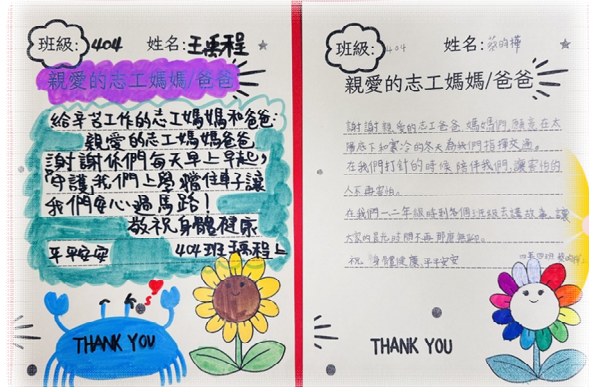 班級: 404 姓名: 王禹程
親愛的志工媽媽/爸爸
給辛苦工作的志工媽媽和爸爸:
親愛的志工媽媽爸爸
謝謝你們每天早上早起,
守護我們上學擋住車子讓
我們安心過馬路!
敬祝身體健康
平平安安 404班王禹程上
THANK YOU
班級: 404 姓名: 蔡昀樺
親愛的志工媽媽/爸爸
謝謝親愛的志工爸爸、媽媽們,願意在太
陽底下和寒冷的冬天為我們指揮交通。
在我們打針的時候陪伴我們,讓害怕的
人不再害怕。
在我們一二年級時到每個班級去講故事,讓
大家的晨光時間不再那麼無聊。
祝 身體健康、平平安安
四年四班
THANK YOU